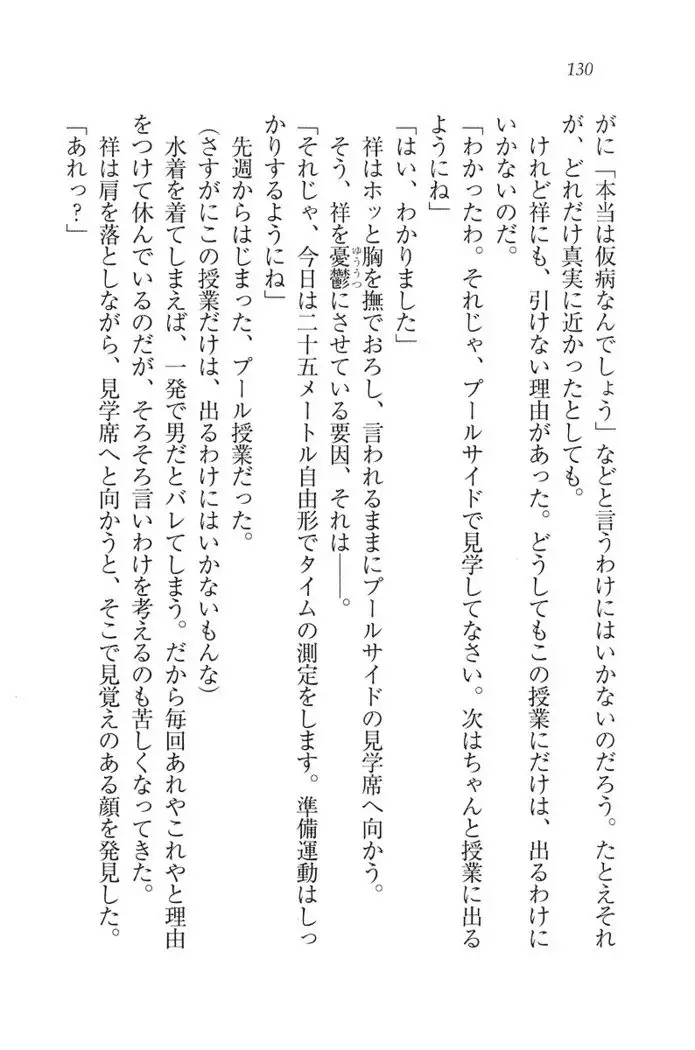 130
がに「本当は仮病なんでしょう」などと言うわけにはいかないのだろう。たとえそれ
が、どれだけ真実に近かったとしても。
けれど祥にも、引けない理由があった。どうしてもこの授業にだけは、出るわけに
いかないのだ。
「わかったわ。それじゃ、プールサイドで見学してなさい。次はちゃんと授業に出る
ようにね」
「はい、わかりました」
祥はホッと胸を撫でおろし、言われるままにプールサイドの見学席へ向かう。
そう、祥を憂鬱にさせている要因、それは――。
ゆううつ
「それじゃ、今日は二十五メートル自由形でタイムの測定をします。準備運動はしっ
かりするようにね」
先週からはじまった、プール授業だった。
(さすがにこの授業だけは、出るわけにはいかないもんな)
水着を着てしまえば、一発で男だとバレてしまう。だから毎回あれやこれやと理由
をつけて休んでいるのだが、そろそろ言いわけを考えるのも苦しくなってきた。
祥は肩を落としながら、見学席へと向かうと、そこで見覚えのある顔を発見した。
「あれっ?」